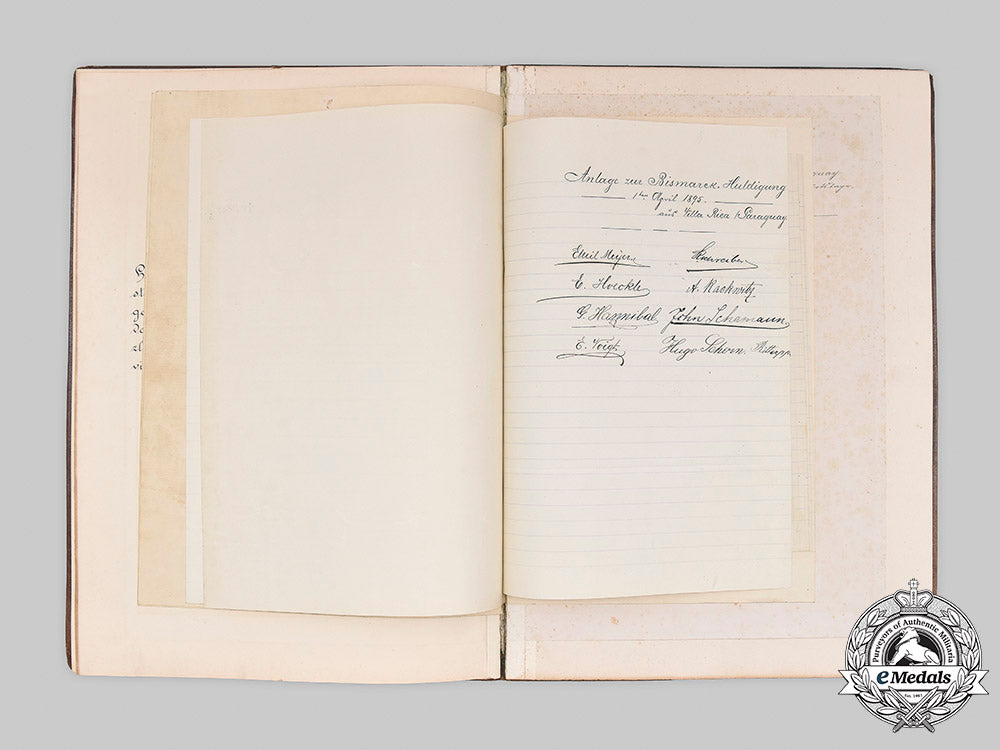 Anlage zur Bismarck-Huldigung
1ten April 1895.
aus Villa Rica / Paraguay.
Emil Meyer Schreiber
E. Hoeckle A. Rackwitz
G. Hannibal John Schamann
E. Voigt Hugo Schorn.
Purveyors of Authentic Militaria
eMedals